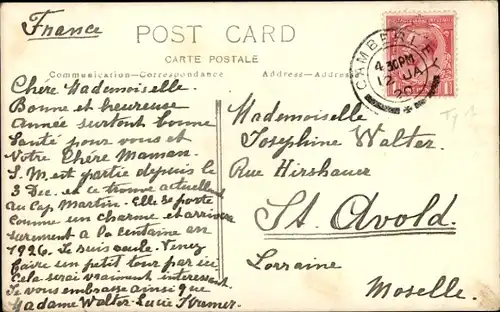 France
POST CARD
CARTE POSTALE
Communication—Correspondance
Address—Adresse
CAMBERLEY
4.30PM
12 JA
20
Chére Mademoiselle
Bonne et heureuse
Année surtout bonne
Santé pour vous et
Votre Chére Maman.
S.M. est partie depuis le
3 Dec. et ce trouve actuellement
au Cap Martin. Elle se porte
comme un charme et arrivera
surement a la centaine en
1926. Je suis seule. Venez
faire un petit tour par ici
Cela serai vraiment interessent
Je vous embrasse ainsi que
Madame Walter. Lucie Kremer.
Mademoiselle
Josephine Walter
Rue Hirshauer
St. Avold.
Lorraine
Moselle.